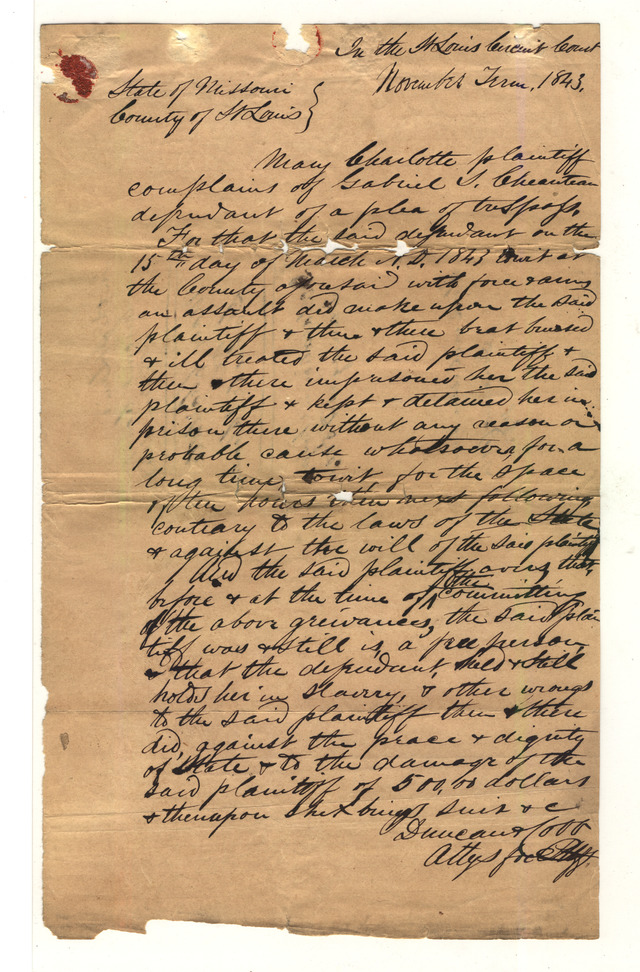 In the St Louis Circuit Court
November Term, 1843.
State of Missouri
County of St Louis
Mary Charlotte plaintiff
complains of Gabriel S. Choteau
defendant of a plea of trespass.
For that the said defendant on the
15th day of March A.D. 1843 towit at
the County aforesaid with force & arms
an assault did make upon the said
plaintiff & then & there beat bruised
& ill treated the said plaintiff &
then & there imprisoned her the said
plaintiff & kept & detained her in
prison there without any reason or
probable cause whatsoever for a
long time towit for the space
of ten hours then next following
contrary to the laws of the State
& against the will of the said plaintiff
And the said plaintiff avers that
before & at the time of the committing
of the above greivances, the said plain
tiff was & still is, a free person,
& that the defendant, held & still
holds her in slavery, & other wrongs
to the said plaintiff then & there
did, against the peace & dignity
of State & to the damage of the
said plaintiff of 500,00 dollars
& thereupon she brings suit & c
Duncan & Cobb
Attys for Plff.